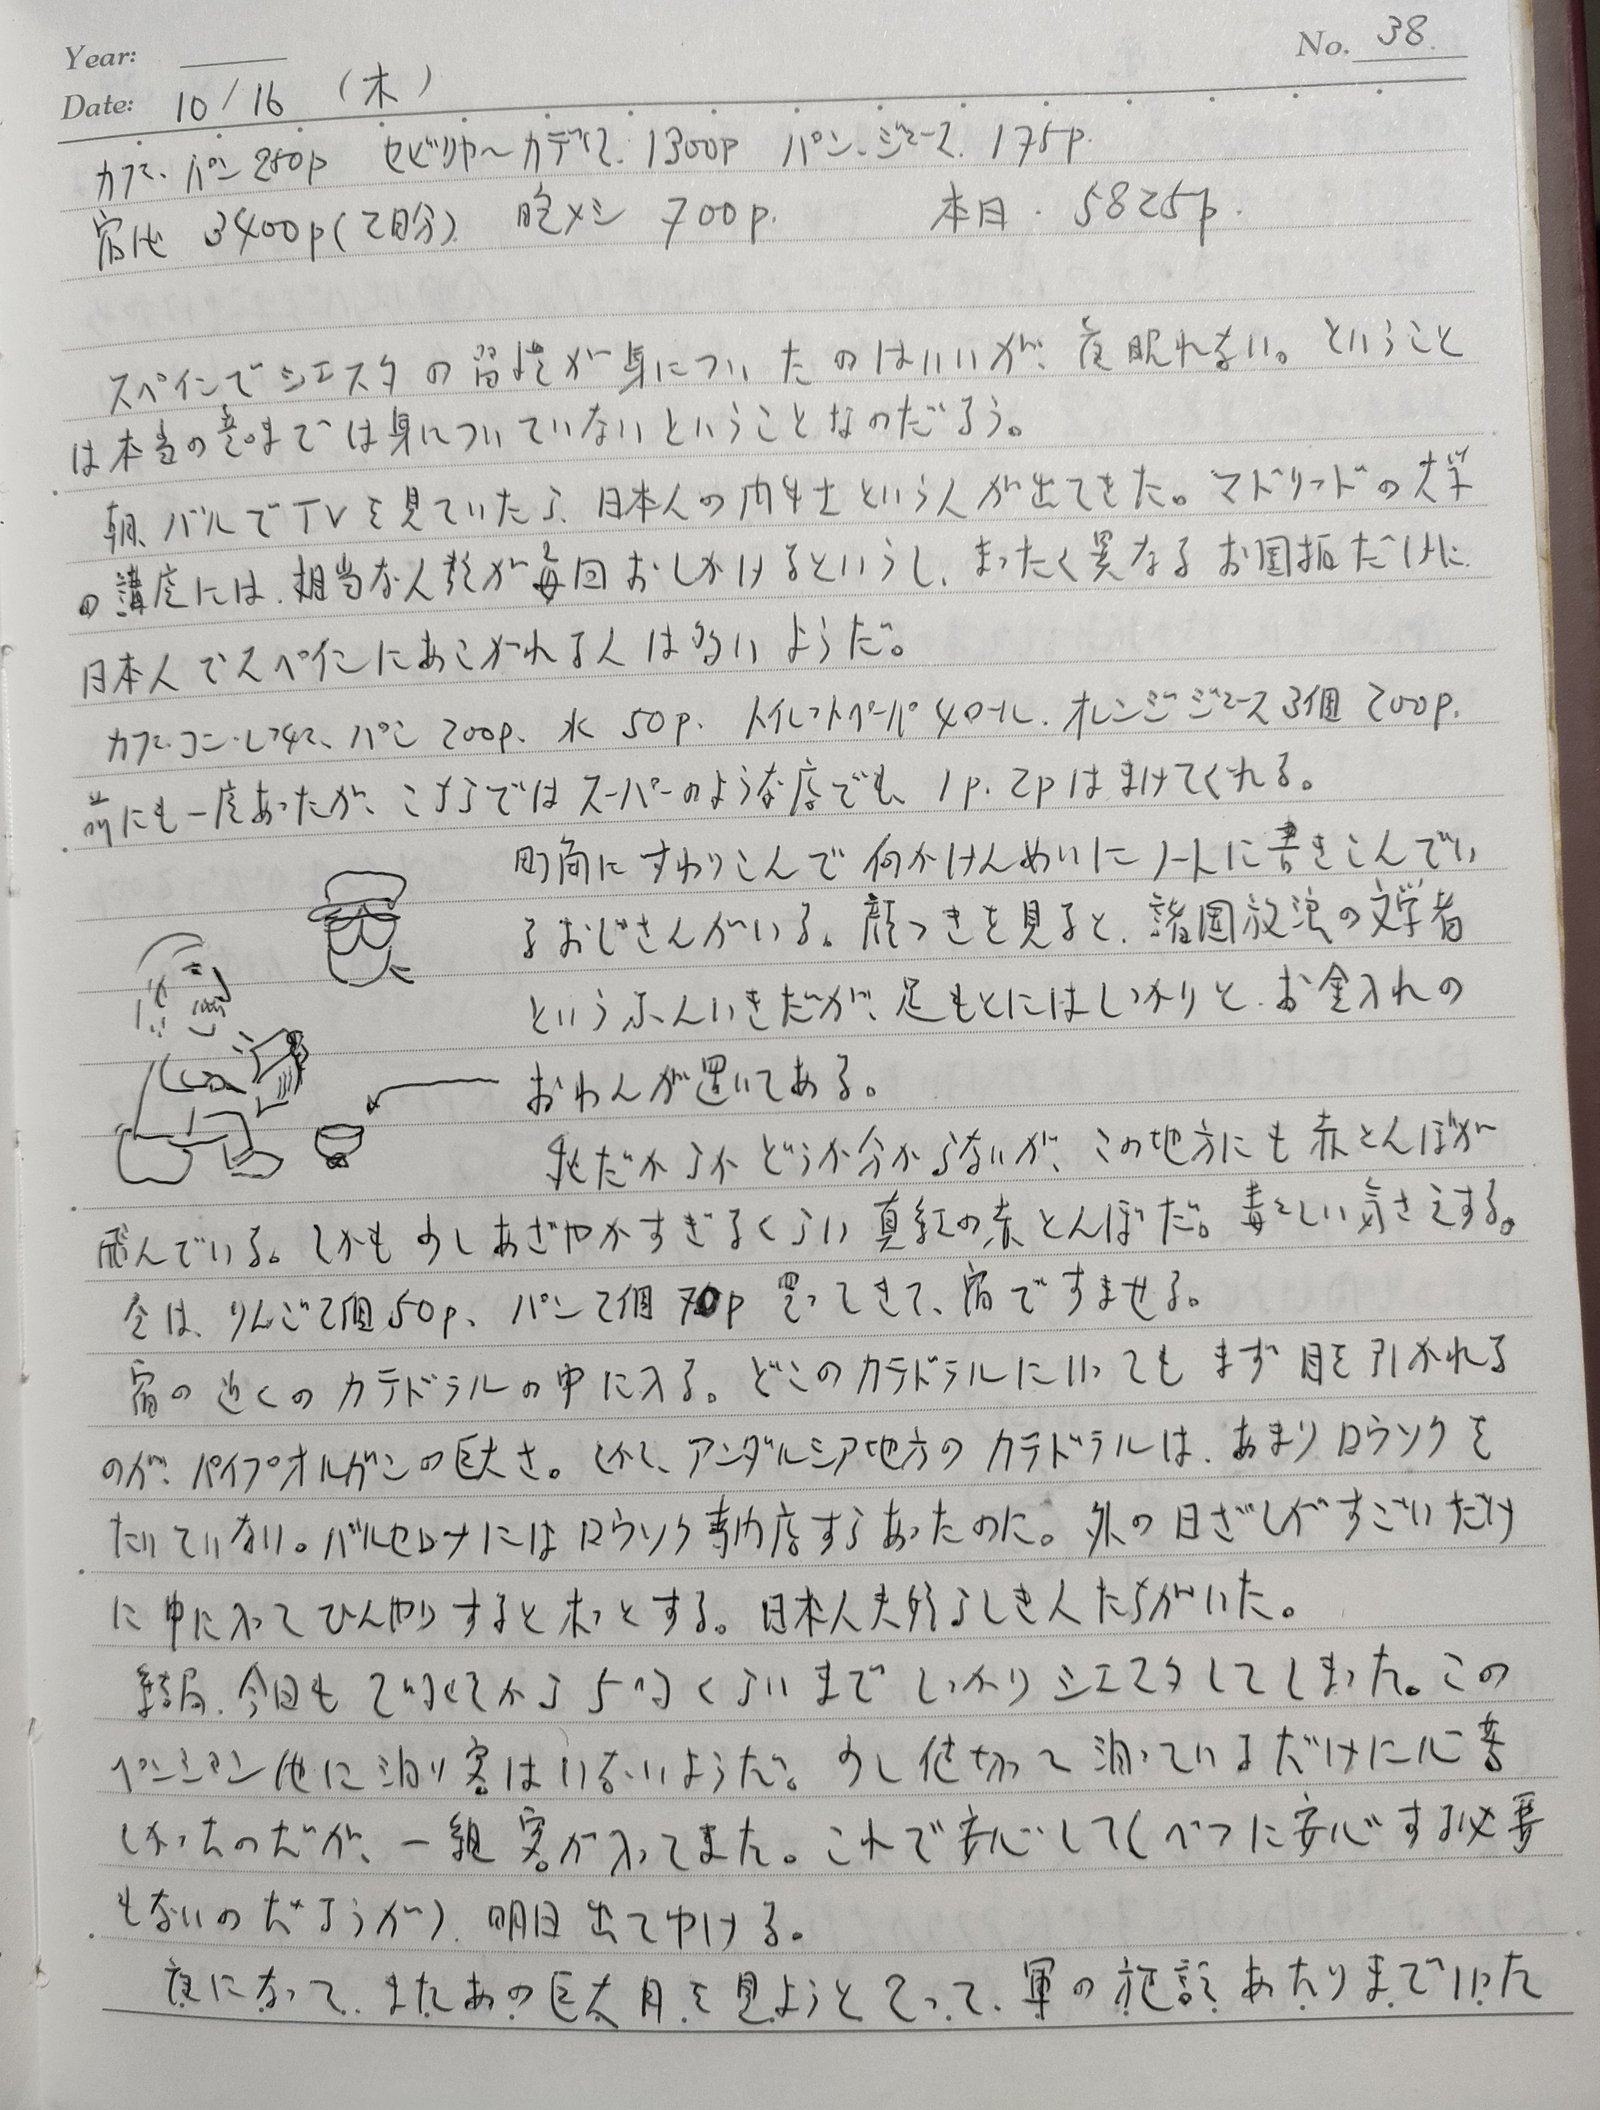 Year:
No. 38.
Date: 10/16 (木)
カフェ・パン 250p セビリヤ～カディス. 1300p パン・ジュース. 175p.
宿代 3400p(2日分) 晩メシ 700p. 本日. 5825p.
スペインでシエスタの習慣が身についたのはいいが、夜眠れない。ということ
は本当の意味では身についていないということなのだろう。
朝、バルでTVを見ていたら、日本人の という人が出てきた。マドリッドの大学
の講座には、相当な人数が毎回おしかけるというし、まったく異なるお国柄だけに
日本人でスペインにあこがれる人は多いようだ。
カフェ・コン・レチェ、パン 200p、水 50p. トイレットペーパ4ロール、オレンジジュース3個 200p.
前にも一度あったが、こちらではスーパーのような店でも、1p. 2pはまけてくれる。
町角にすわりこんで何かけんめいにノートに書きこんでい
るおじさんがいる。顔つきを見ると、諸国放浪の文学者
というふんいきだが、足もとにはしっかりと、お金入れの
おわんが置いてある。
秋だからかどうか分からないが、この地方にも赤とんぼが
飛んでいる。しかも少しあざやかすぎるくらい真紅の赤とんぼだ。毒々しい気さえする。
昼は、りんご2個50p、パン2個70p 買ってきて、宿ですませる。
宿の近くのカテドラルの中に入る。どこのカテドラルにいってもまず目を引かれる
のが、パイプオルガンの巨大さ。しかし、アンダルシア地方のカテドラルは、あまりロウソクを
たいていない。バルセロナにはロウソク専門店すらあったのに。外の日ざしがすごいだけ
に中に入ってひんやりするとホッとする。日本人夫婦らしき人たちがいた。
結局、今日も2時くらいから5時くらいまでしっかりシエスタしてしまった。この
ペンション他に泊り客はいないようだ。少し値切って泊っているだけに心苦
しかったのだが、一組客が入ってきた。これで安心して(べつに安心する必要
もないのだろうが)、明日出てゆける。
夜になって、またあの巨大月を見ようと思って、軍の施設あたりまでいった